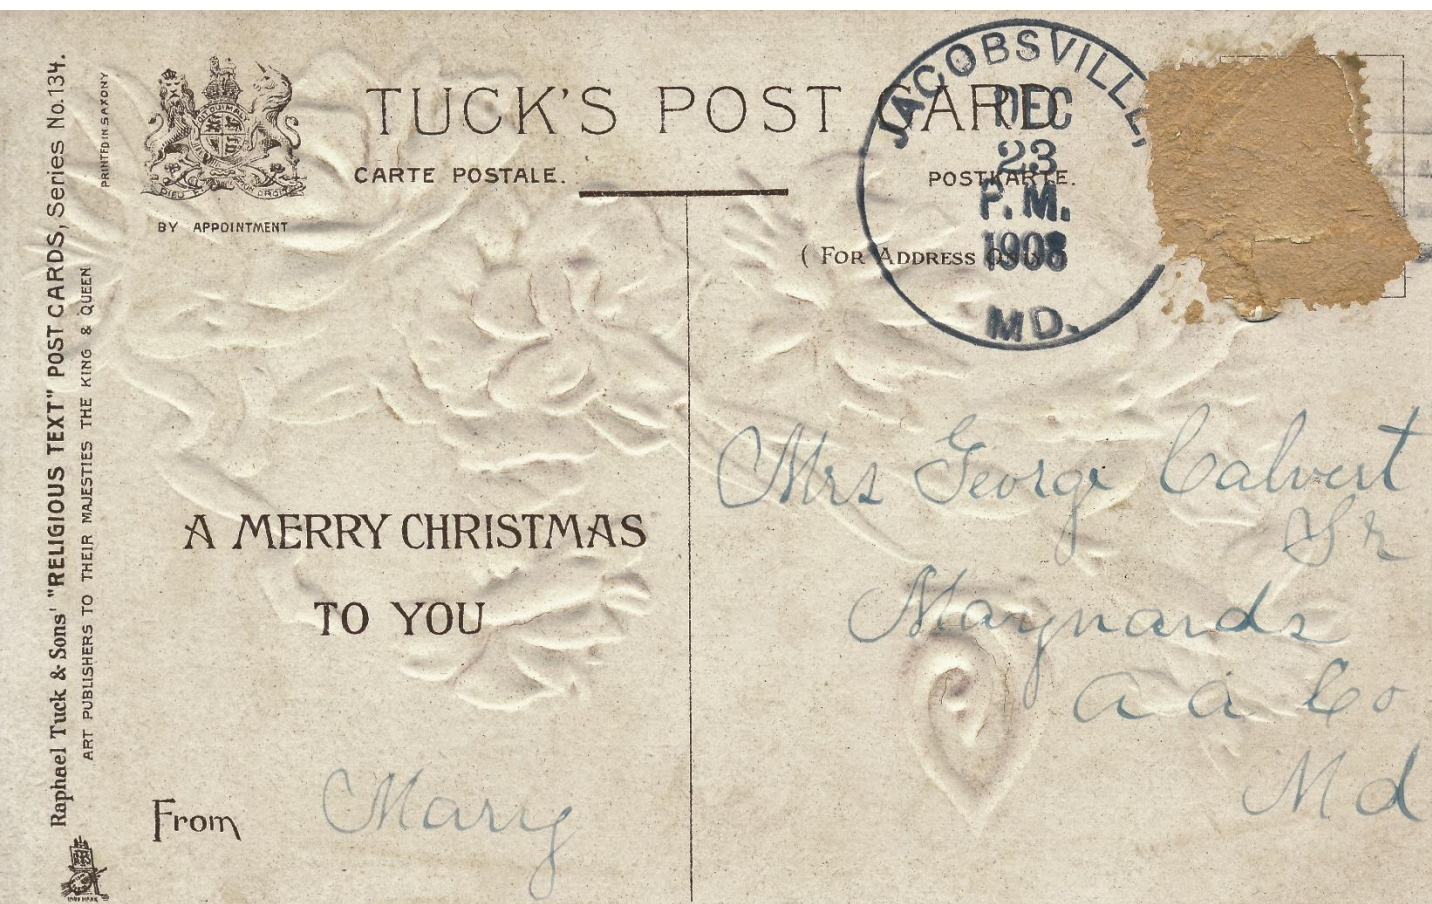 Raphael Tuck & Sons' "RELIGIOUS TEXT" POST CARDS, Series No. 134.
ART PUBLISHERS TO THEIR MAJESTIES THE KING & QUEEN
PRINTED IN SAXONY
BY APPOINTMENT
TUCK'S POST CARD
CARTE POSTALE.
POSTKARTE.
(FOR ADDRESS ONLY
JACOBSVILLE,
DEC
23
P.M.
1908
MD.
A MERRY CHRISTMAS
TO YOU
From Mary
Mrs George Calvert
Sr
Maynards
A A Co
Md